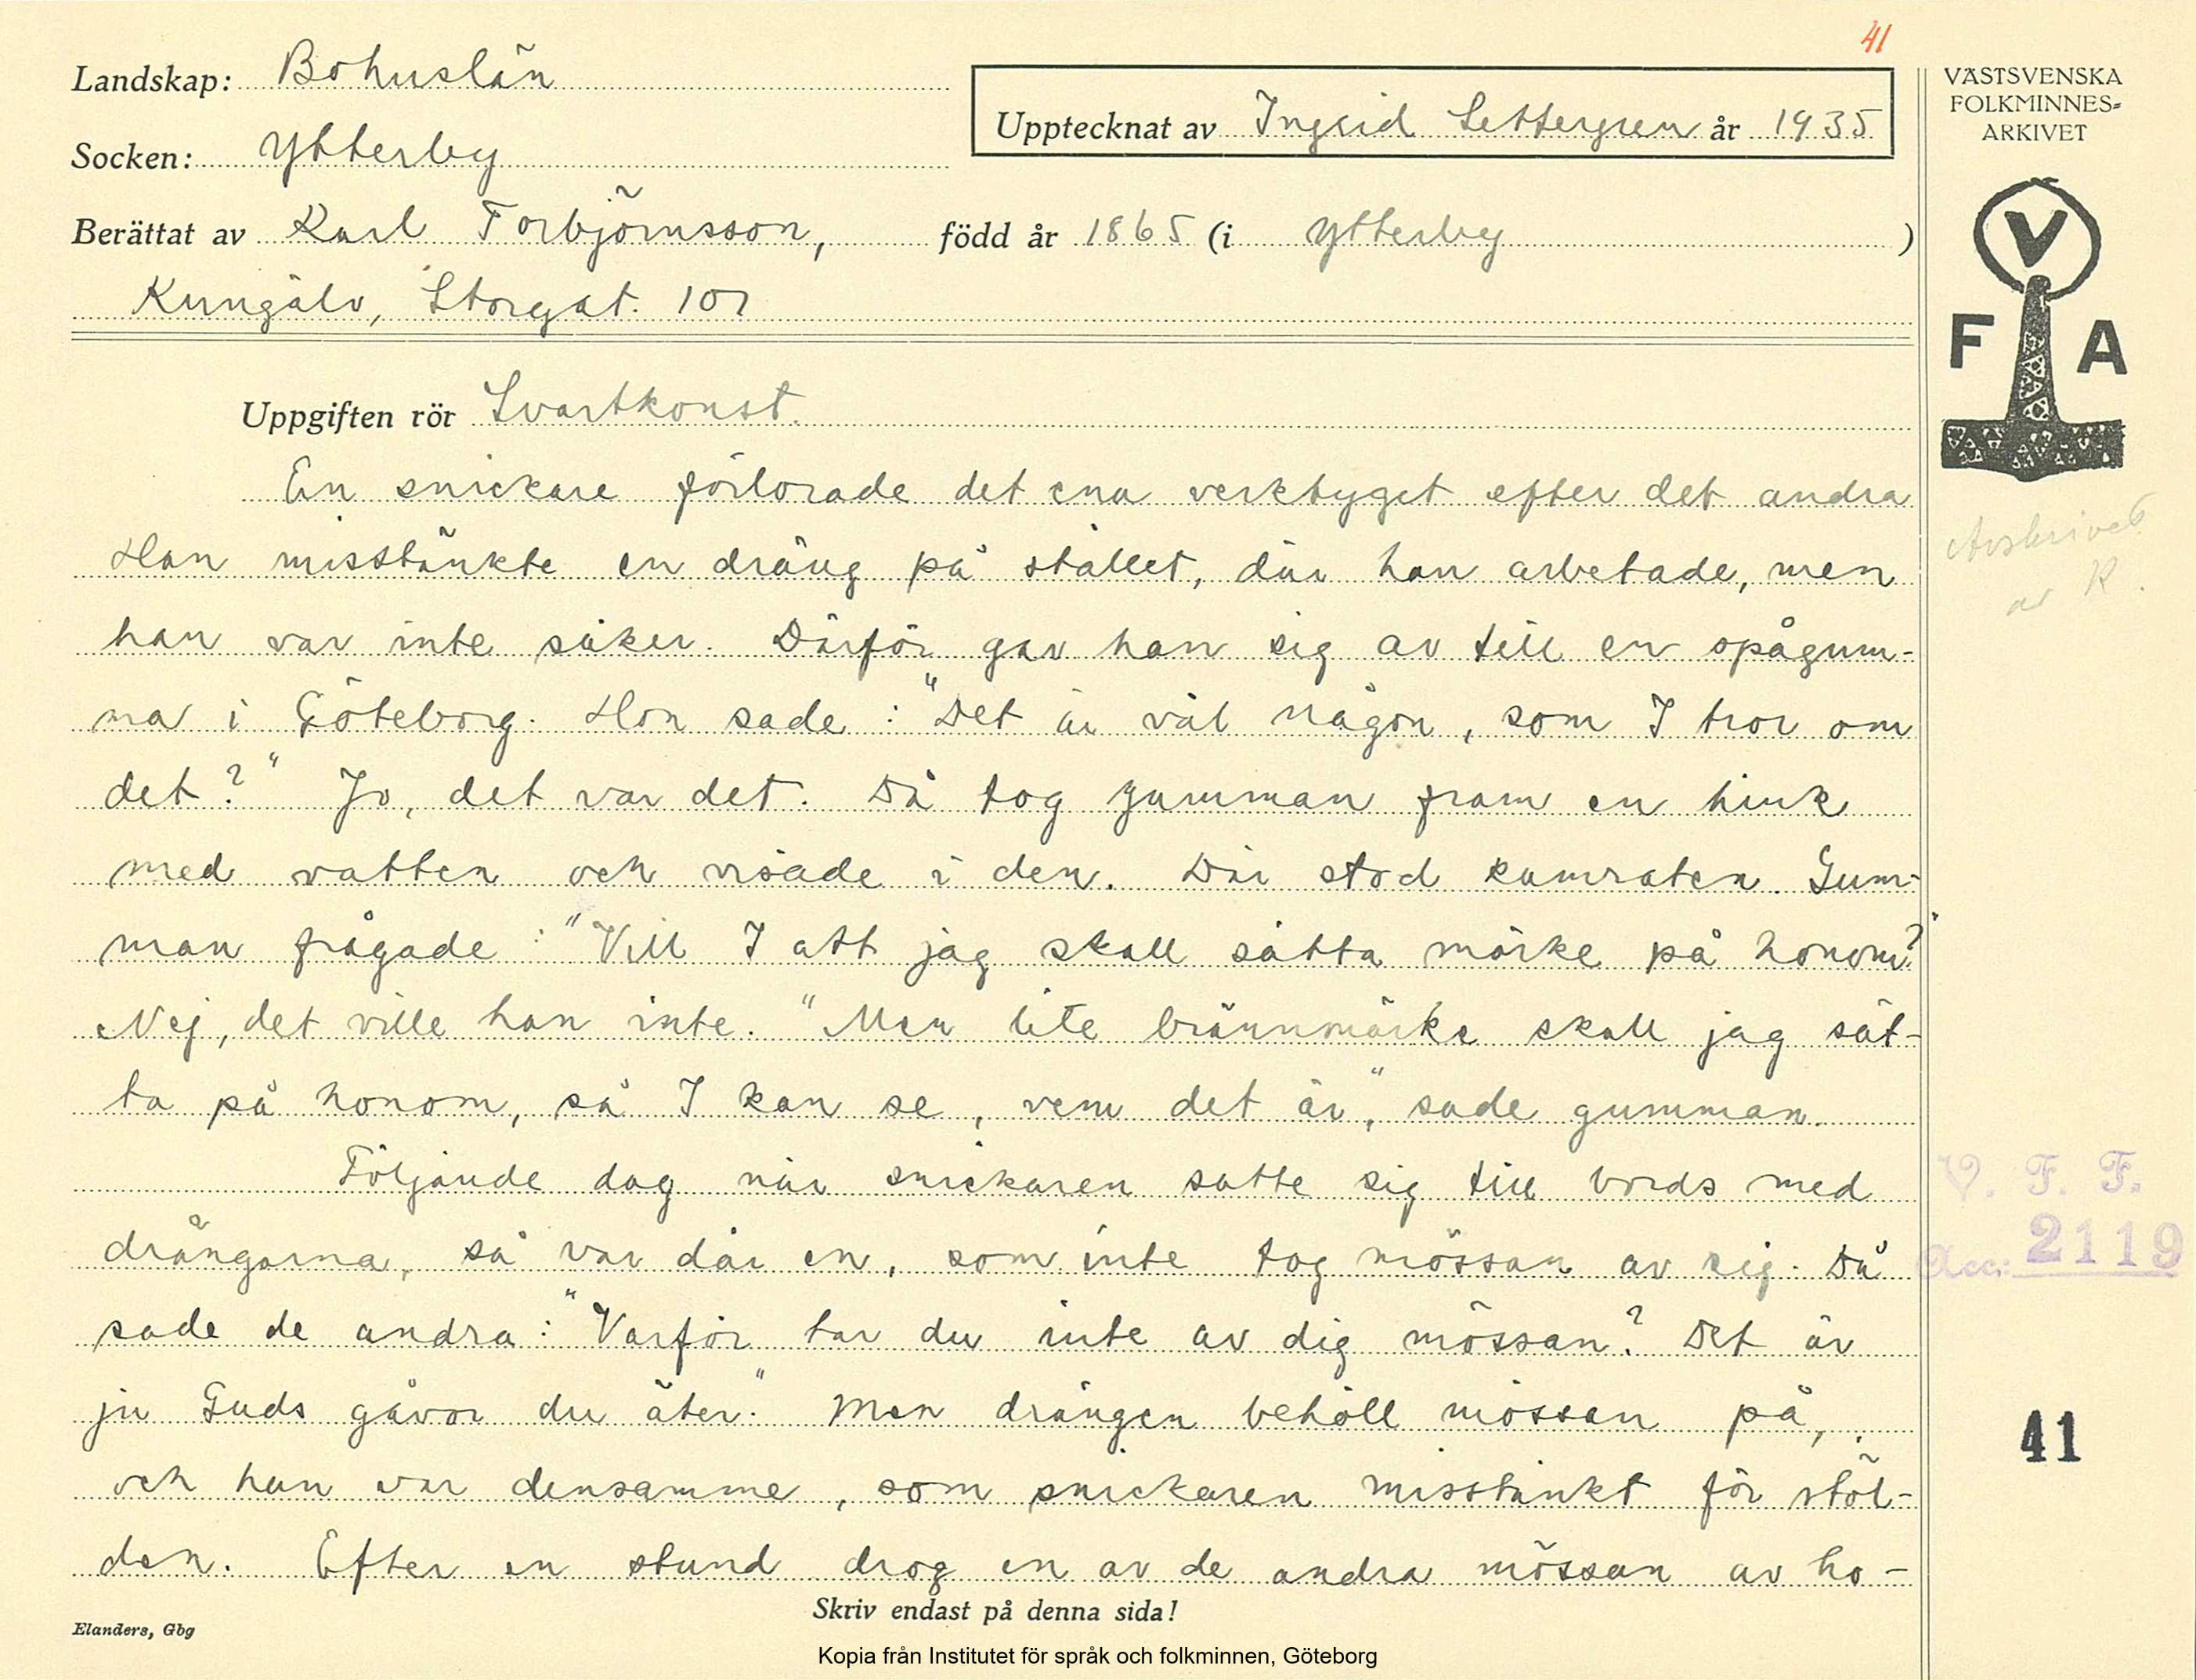 41
Landskap: Bohuslän
Socken: Ytterby
Upptecknat av Ingrid Settergren år 1935
Berättat av Karl Torbjörnsson, född år 1865 (i Ytterby )
Kungälv, Storgat. 107
VÄSTSVENSKA
FOLKMINNES-
ARKIVET
V
F A
Uppgiften rör Svartkonst.
En snickare förlorade det ena verktyget efter det andra
Han misstänkte en dräng på stället, där han arbetade, men
han var inte säker. Därför gav han sig av till en spågum-
ma i Göteborg. Hon sade: "Det är väl någon, som I tror om
det?" Jo, det var det. Då tog gumman fram en hink
med vatten och visade i den. Där stod kamraten. Gum-
man frågade: "Vill I att jag skall sätta märke på honom?"
Nej, det ville han inte. "Men lite brännmärke skall jag sät-
ta på honom, så I kan se, vem det är," sade gumman.
Följande dag när snickaren satte sig till bords med
drängarna, så var där en, som inte tog mössan av sig. Då
sade de andra: "Varför tar du inte av dig mössan? Det är
ju Guds gåvor du äter." Men drängen behöll mössan på,
och han var densamme, som snickaren misstänkt för stöl-
den. Efter en stund drog en av de andra mössan av ho-
Avskrivet
av R.
V. F. F.
Acc: 2119
41
Skriv endast på denna sida!
Elanders, Gbg
Kopia från Institutet för språk och folkminnen, Göteborg